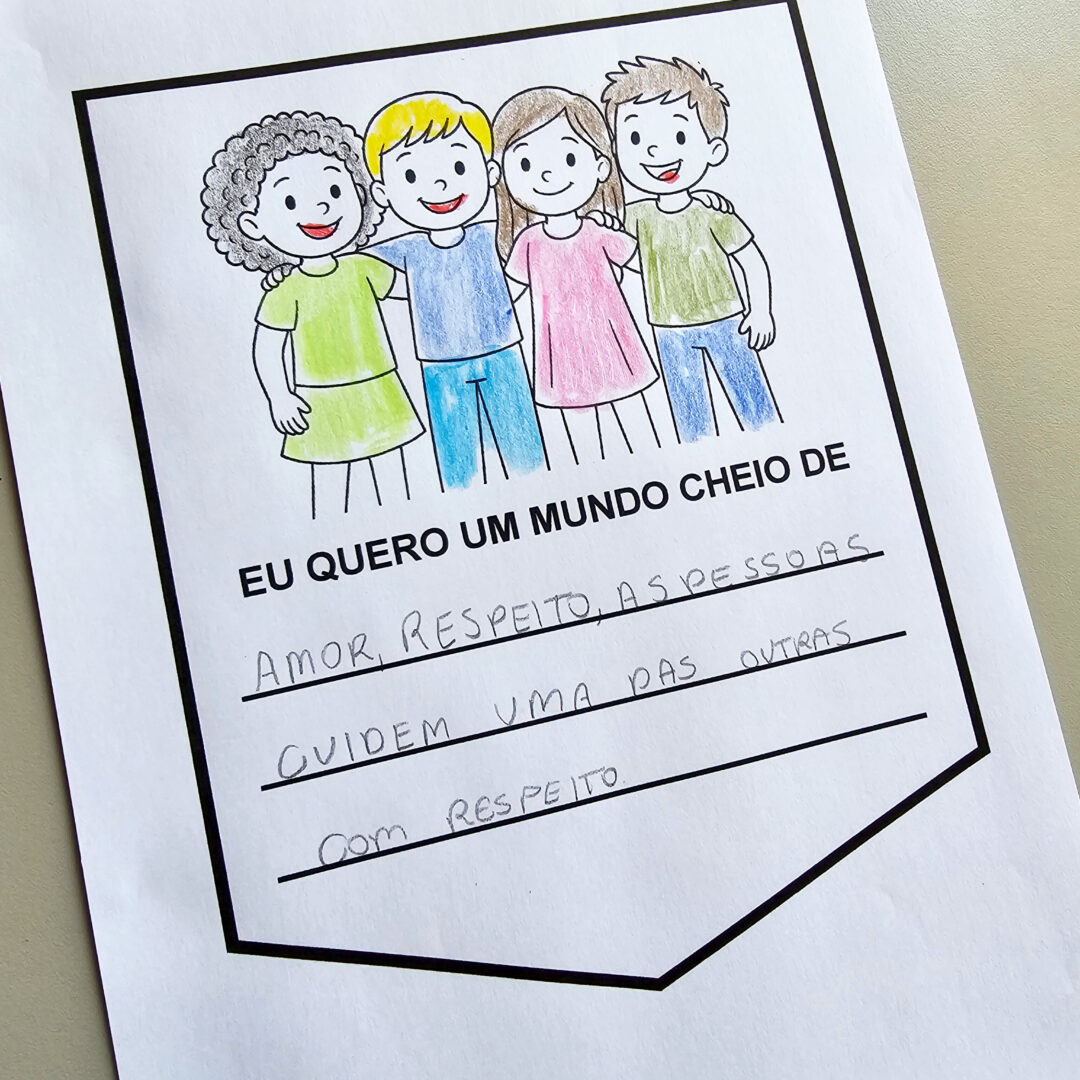 EU QUERO UM MUNDO CHEIO DE
AMOR, RESPEITO, AS PESSOAS
CUIDEM UMA DAS OUTRAS
COM RESPEITO.